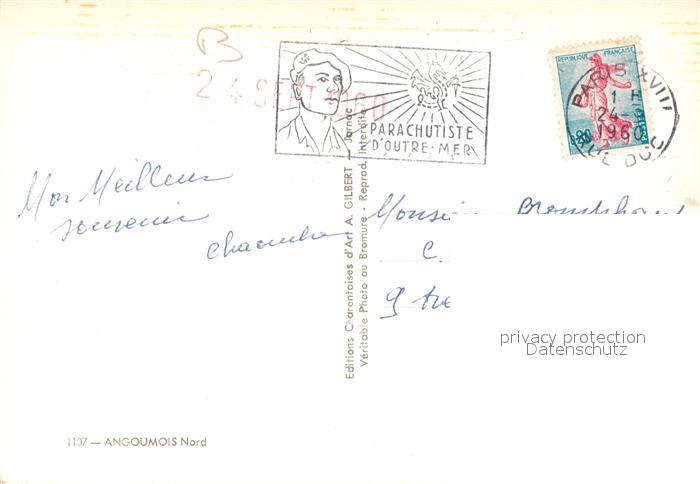 B
24 SEPT 1960
PARACHUTISTE
D'OUTRE-MER
REPUBLIQUE FRANÇAISE
PARIS XVIII
1 H
24-
1960
RUE DUC
Mon Meilleur
souvenir
Monsi
C.
9 Ave
Editions Charentaises d'Art A. GILBERT — Jarnac
Véritable Photo au Bromure - Reprod. Interdite
privacy protection
Datenschutz
1107 — ANGOUMOIS Nord